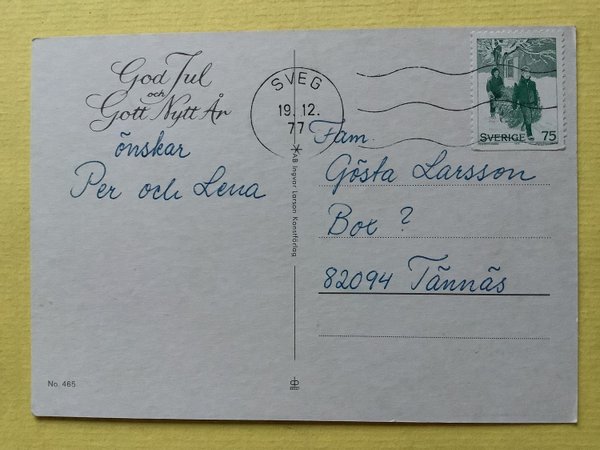 God Jul
och
Gott Nytt År
önskar
Per och Lena
No. 465
SVEG
19.12.
77
AB Ingvar Larson Konstförlag
SVERIGE 75
Fam.
Gösta Larsson
Box ?
82094 Tännäs